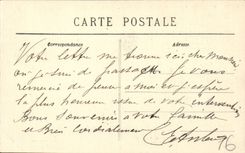 CARTE POSTALE
Correspondance Adresse
Votre lettre me trouve ici chez
où je suis de passage je vous
remercie de penser à moi et j'espère
la plus heureuse de votre intervention
Bons souvenirs à votre famille
et Bien cordialement